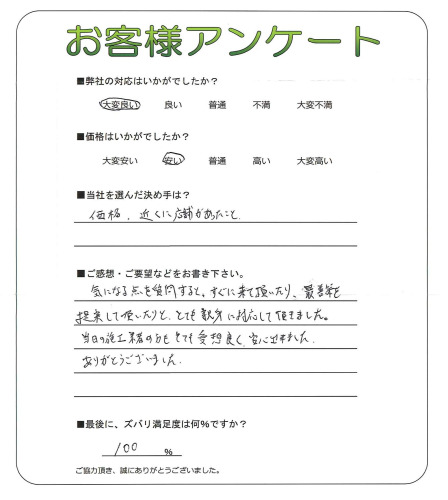 お客様アンケート
■弊社の対応はいかがでしたか？
大変良い 良い 普通 不満 大変不満
■価格はいかがでしたか？
大変安い 安い 普通 高い 大変高い
■当社を選んだ決め手は？
価格、近くに店舗があったこと.
■ご感想・ご要望などをお書き下さい。
気になる点を質問すると、すぐに来て頂いたり、最善策を
提案して頂いたりと、とても親身に対応して頂きました。
当日の施工業者の方もとても愛想良く、安心出来ました.
ありがとうございました.
■最後に、ズバリ満足度は何％ですか？
100 %
ご協力頂き、誠にありがとうございました。